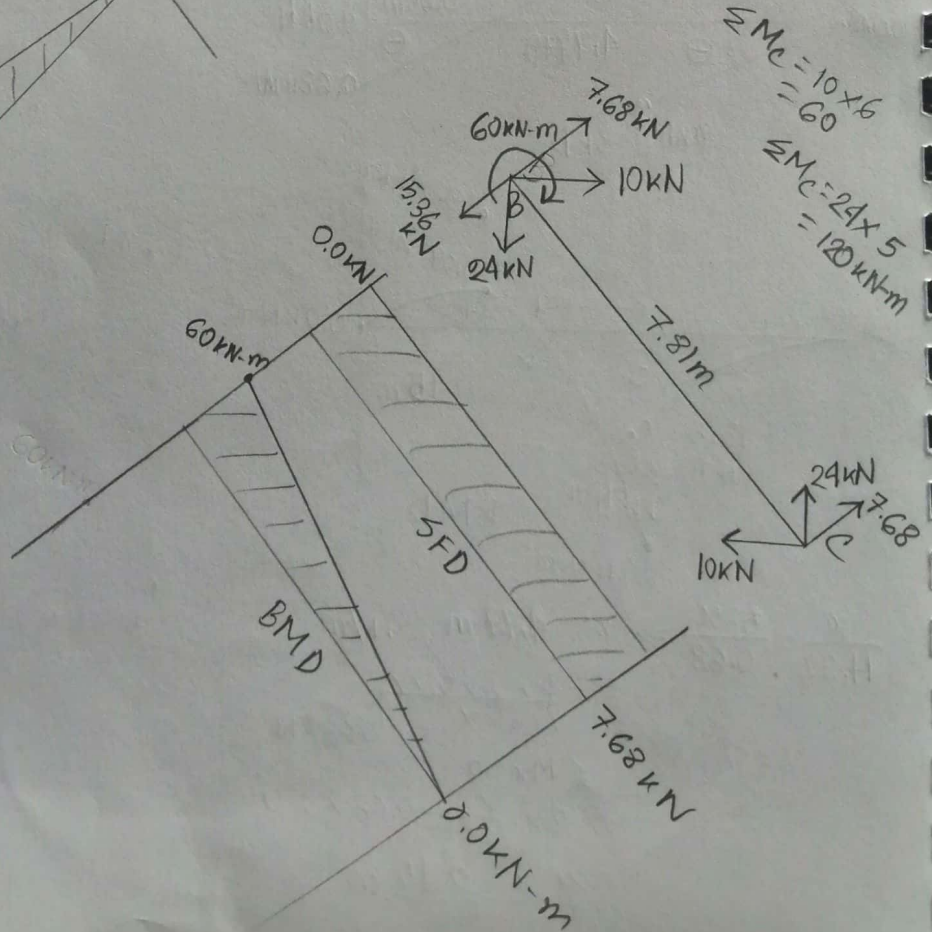 ΣMc = 10×6
= 60
ΣMc = 24×5
= 120kN-m
7.68kN
60kN-m
10kN
B
15.36
kN
24kN
0.0kN
60kN-m
7.81m
24kN
7.68
10kN
C
SFD
BMD
7.68kN
0.0kN-m